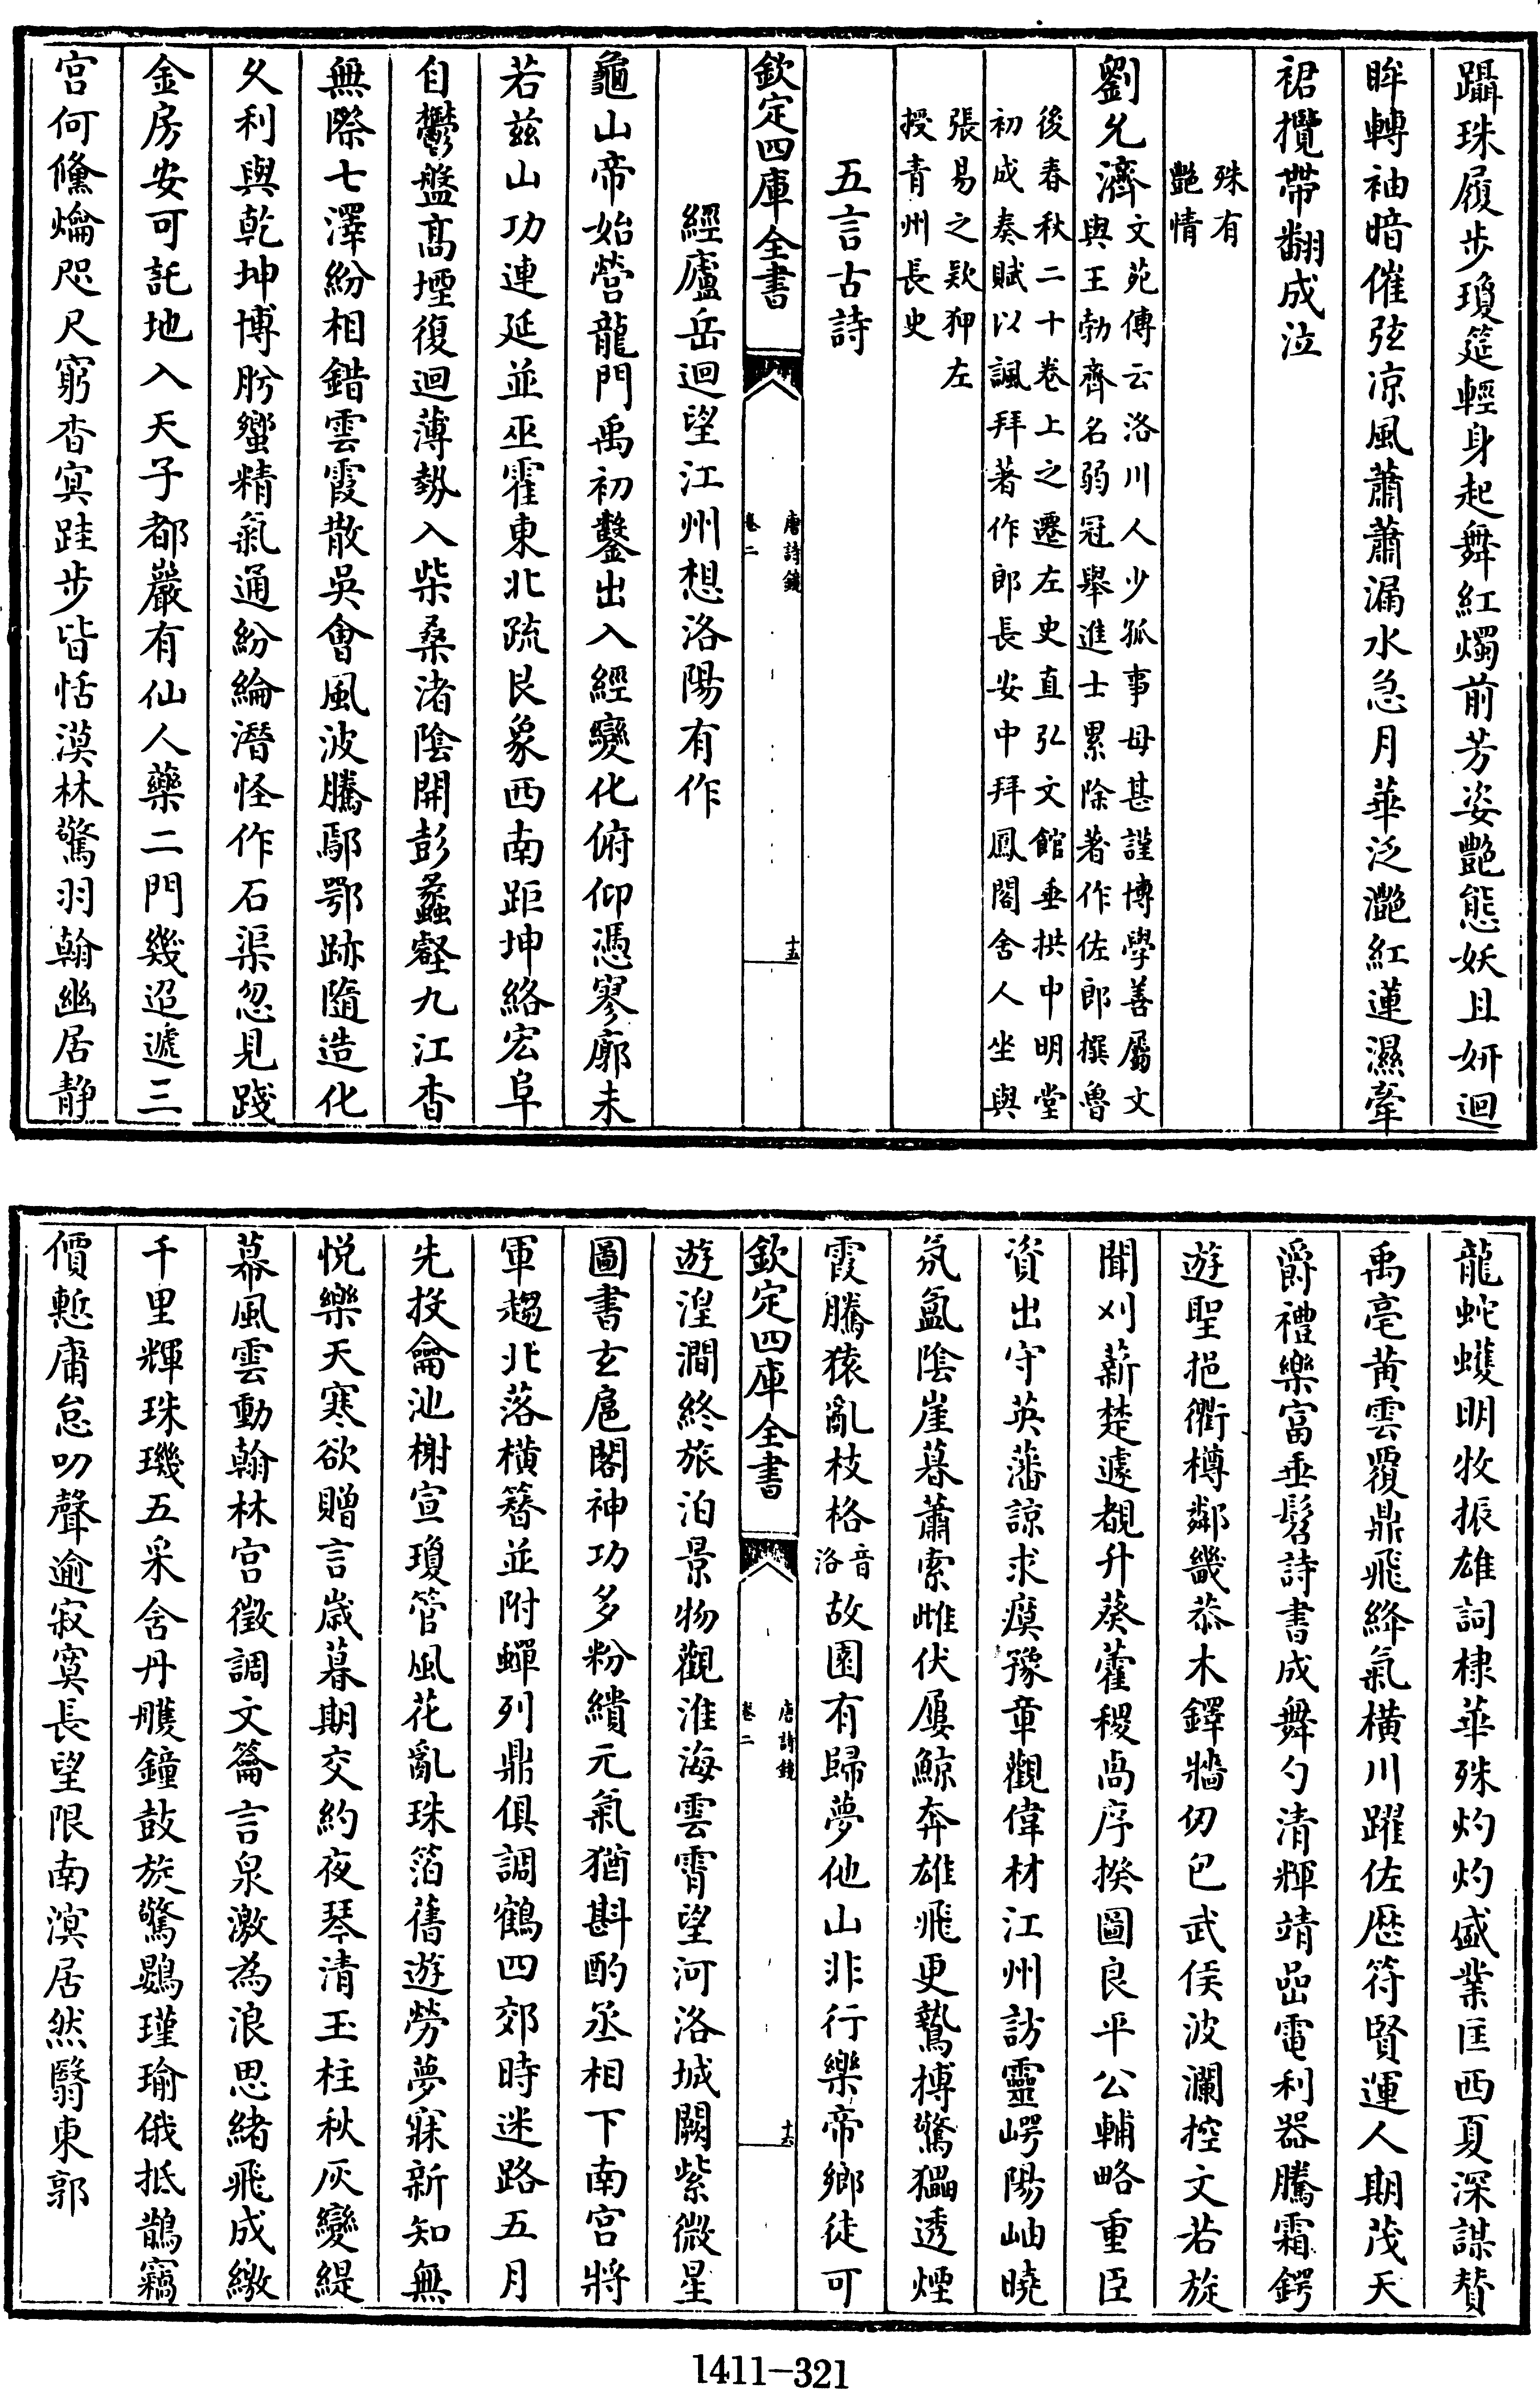 躡珠履步瓊筵輕身起舞紅燭前芳姿艷態妖且妍迴
眸轉袖暗催弦涼風蕭蕭漏水急月華泛灧紅蓮濕牽
裙攬帶翻成泣
殊有
艷情
劉允濟
文苑傳云洛川人少孤事母甚謹博學善屬文
與王勃齊名弱冠舉進士累除著作佐郎撰魯
後春秋二十卷上之遷左史直弘文館垂拱中明堂
初成奏賦以諷拜著作郎長安中拜鳳閣舍人坐與
張易之欵狎左
授青州長史
五言古詩
欽定四庫全書
唐詩鏡
卷二
十五
經廬岳迴望江州想洛陽有作
龜山帝始營龍門禹初鑿出入經變化俯仰憑寥廓未
若兹山功連延並巫霍東北疏艮象西南距坤絡宏阜
自鬱盤高堙復迴薄勢入柴桑渚陰開彭蠡壑九江杳
無際七澤紛相錯雲霞散吳會風波騰鄢鄂跡隨造化
久利與乾坤博肹蠁精氣通紛綸潛怪作石渠忽見踐
金房安可託地入天子都嚴有仙人藥二門幾迢遞三
宮何儵爚咫尺窮杳冥跬步皆恬漠林驚羽翰幽居静
龍蛇蠖明牧振雄詞棣華殊灼灼盛業匡西夏深謀贊
禹亳黃雲覆鼎飛絳氣橫川躍佐歷符賢運人期茂天
爵禮樂富垂髫詩書成舞勺清輝靖嵒電利器騰霜鍔
遊聖挹衢樽鄰畿恭木鐸牆仞包武侯波瀾控文若旋
聞刈薪楚遽覩升葵藿稷卨序揆圖良平公輔略重臣
資出守英藩諒求瘼豫章觀偉材江州訪靈崿陽岫曉
氛氳陰崖暮蕭索雌伏屢鯨奔雄飛更鷙搏驚猵透煙
霞騰猿亂枝格
音
洛
故園有歸夢他山非行樂帝鄉徒可
欽定四庫全書
唐詩鏡
卷二
十六
遊湟澗終旅泊景物觀淮海雲霄望河洛城闕紫微星
圖書玄扈閣神功多粉繢元氣猶斟酌丞相下南宮將
軍趨北落橫簪並附蟬列鼎俱調鶴四郊時迷路五月
先投龠池榭宣瓊管風花亂珠箔舊遊勞夢寐新知無
悦樂天寒欲贈言歲暮期交約夜琴清玉柱秋灰變緹
幕風雲動翰林宮徵調文籥言泉激為浪思緒飛成繳
千里輝珠璣五采含丹雘鐘鼓旋驚鷃瑾瑜俄抵鵲竊
價慙庸怠叨聲逾寂寞長望限南溟居然翳東郭
1411-321